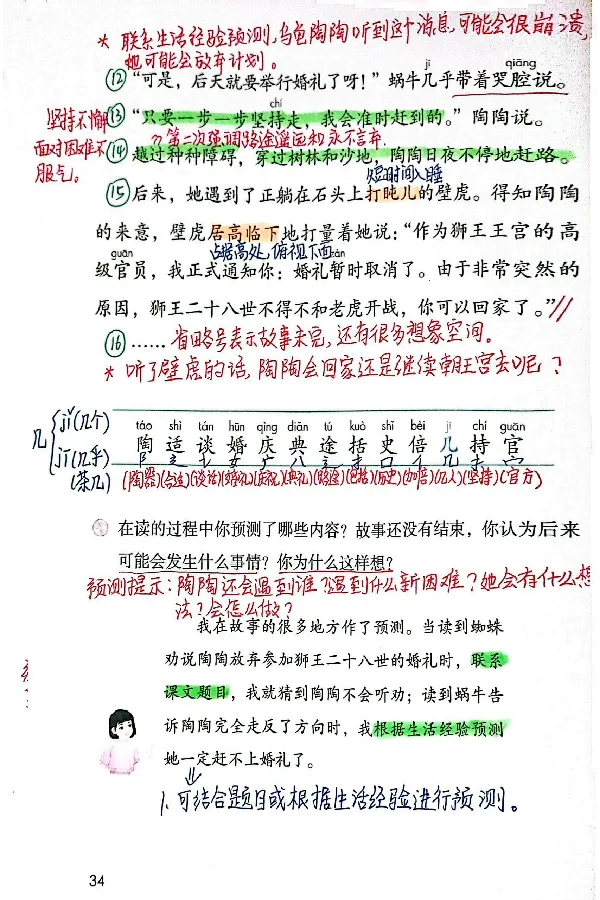 * 联系生活经验预测,乌龟陶陶听到这个消息,可能会很崩溃,
她可能会放弃计划。
jī qiāng
⑫“可是,后天就要举行婚礼了呀!”蜗牛几乎带着哭腔说。
chí
坚持不懈
面对困难不
服气。
⑬“只要一步一步坚持走,我会准时赶到的。”陶陶说。
第二次强调路途遥远和永不言弃.
⑭越过种种障碍,穿过树林和沙地,陶陶日夜不停地赶路。
短时间入睡
⑮后来,她遇到了正躺在石头上打盹儿的壁虎。得知陶陶
的来意,壁虎居高临下地打量着她说:“作为狮王王宫的高
占据高处,俯视下面
guān zàn
级官员,我正式通知你:婚礼暂时取消了。由于非常突然的
原因,狮王二十八世不得不和老虎开战,你可以回家了。”//
⑯…… 省略号表示故事未完,还有很多想象空间。
* 听了壁虎的话,陶陶会回家还是继续朝王宫去呢?
几 jǐ(几个)
jī(几乎)
(茶几)
táo shì tán hūn qìng diǎn tú kuò shǐ bèi jī chí guān
陶 适 谈 婚 庆 典 途 括 史 倍 几 持 官
(陶器)(合适)(谈话)(婚礼)(庆祝)(典礼)(路途)(包括)(历史)(加倍)(几人)(坚持)(官方)
在读的过程中你预测了哪些内容?故事还没有结束,你认为后来
可能会发生什么事情?你为什么这样想?
预测提示:陶陶还会遇到谁?遇到什么新困难?她会有什么想
法?会怎么做?
我在故事的很多地方作了预测。当读到蜘蛛
劝说陶陶放弃参加狮王二十八世的婚礼时,联系
课文题目,我就猜到陶陶不会听劝;读到蜗牛告
诉陶陶完全走反了方向时,我根据生活经验预测
她一定赶不上婚礼了。
1.可结合题目或根据生活经验进行预测。
34